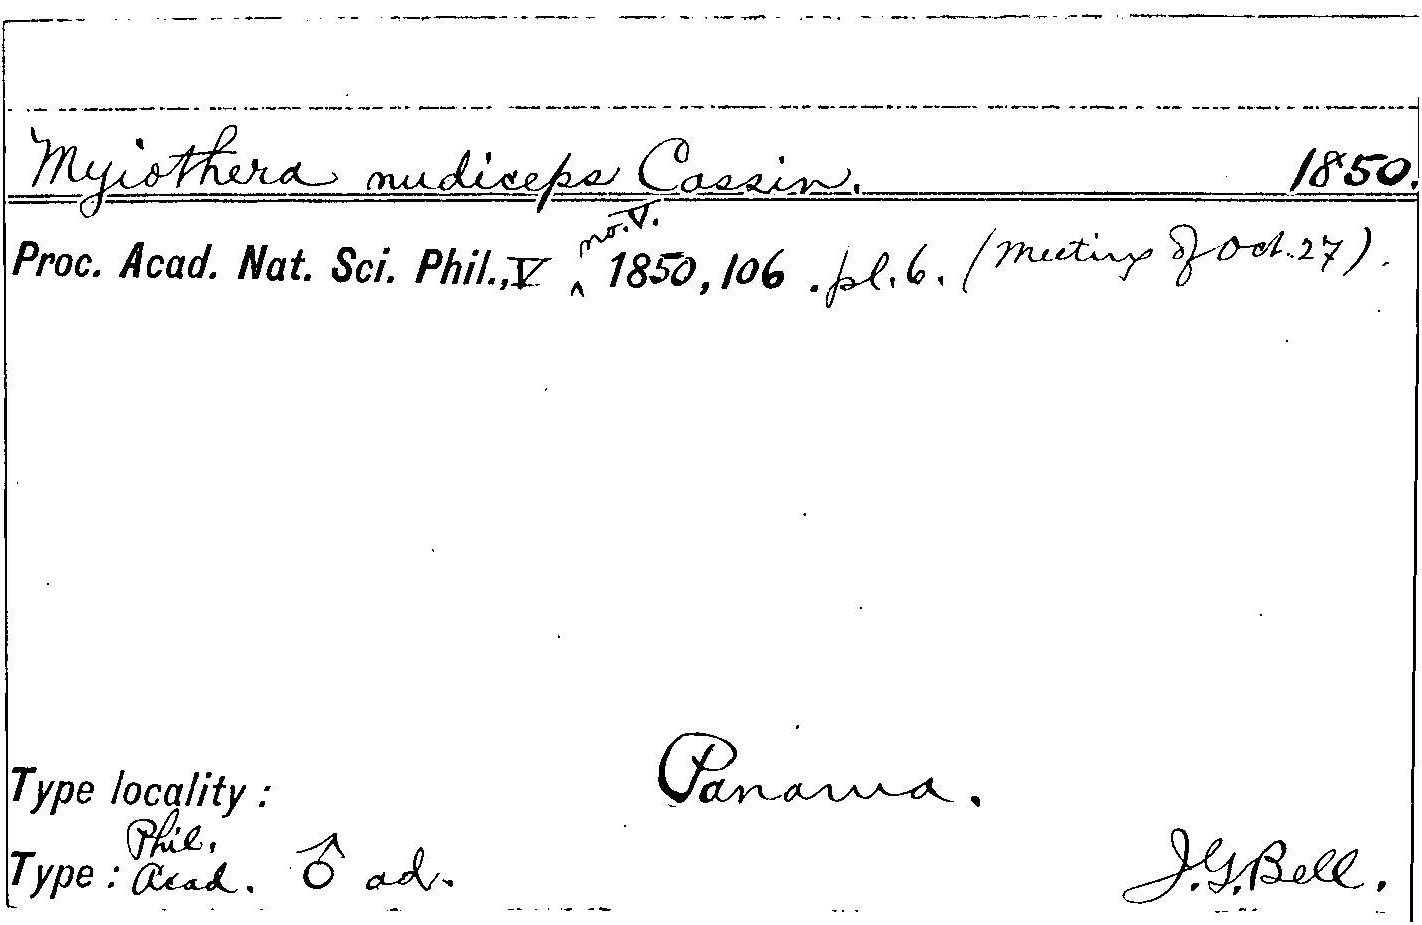 Myiothera nudiceps Cassin. 1850.
Proc. Acad. Nat. Sci. Phil., V ‸ no. V. 1850, 106 . pl. 6. (Meeting of Oct. 27).
Type locality : Panama.
Type : Phil. Acad. ♂ ad. J. G. Bell.